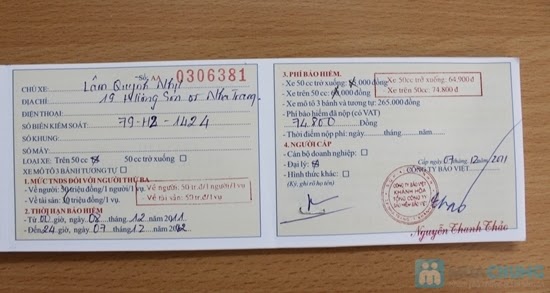 Số: AA 0306381
CHỦ XE: Lâm Quỳnh Như
ĐỊA CHỈ: 19 Hồng Sơn Nha Trang
ĐIỆN THOẠI:
SỐ BIỂN KIỂM SOÁT: 79-H2-1424
SỐ KHUNG:
SỐ MÁY:
LOẠI XE: Trên 50 cc 50 cc trở xuống:
XE MÔTÔ 3 BÁNH VÀ TƯƠNG TỰ:
1. MỨC TNDS ĐỐI VỚI NGƯỜI THỨ BA
- Về người: triệu đồng/1 người/1 vụ.
- Về tài sản: triệu đồng/1 vụ.
Về người: 50 tr.đ/1 người/1 vụ
Về tài sản: 50 tr.đ/1 vụ
2. THỜI HẠN BẢO HIỂM
- Từ 00 giờ, ngày 08 tháng 12 năm 2011
- Đến 24 giờ, ngày 07 tháng 12 năm 2012
3. PHÍ BẢO HIỂM.
- Xe 50cc trở xuống: .000 đồng
- Xe trên 50cc: .000 đồng
Xe 50cc trở xuống: 64.900 đ
- Xe trên 50cc: 74.800 đ
- Xe mô tô 3 bánh và tương tự: 265.000 đồng
- Phí bảo hiểm đã nộp (có VAT)
74 800 Đồng
- Thời điểm nộp phí: ngày tháng năm
4. NGƯỜI CẤP
- Cán bộ doanh nghiệp:
- Đại lý:
- Hình thức khác:
(Ký, ghi rõ họ tên)
Cấp ngày 07 tháng 12 / 2011
CÔNG TY BẢO VIỆT
CÔNG TY BẢO VIỆT
KHÁNH HÒA
TỔNG CÔNG TY
BẢO HIỂM BẢO VIỆT
Nguyễn Thanh Thảo